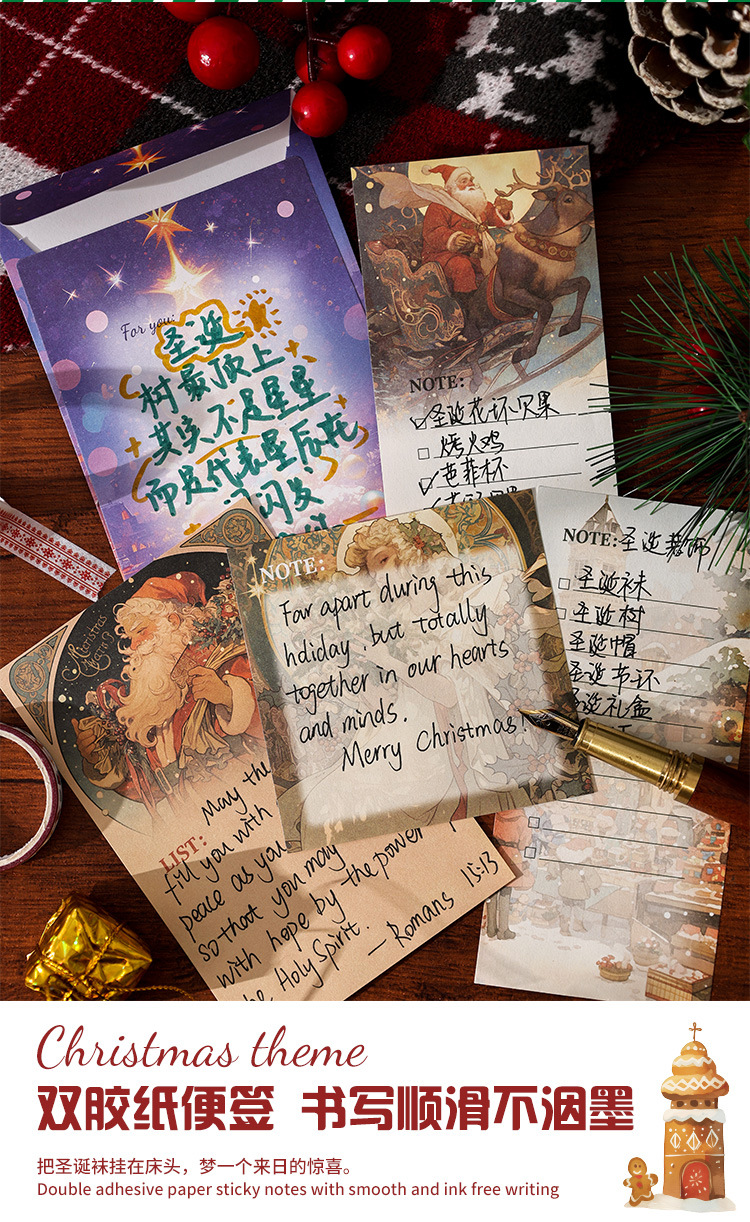 For you:
圣诞
树最顶上
其实不是星星
而是代表星辰在
闪发
NOTE:
圣诞花环贝果
烤火鸡
芭菲杯
NOTE:圣诞装饰
圣诞袜
圣诞树
圣诞帽
圣诞节环
圣诞礼盒
NOTE:
Far apart during this
hdiday, but totally
together in our hearts
and minds.
Merry Christmas!
Christmas
LIST:
May the
fill you with
peace as you
so that you may
with hope by the power
the Holy Spirit.
— Romans 15:13
Christmas theme
双胶纸便签 书写顺滑不洇墨
把圣诞袜挂在床头，梦一个来日的惊喜。
Double adhesive paper sticky notes with smooth and ink free writing